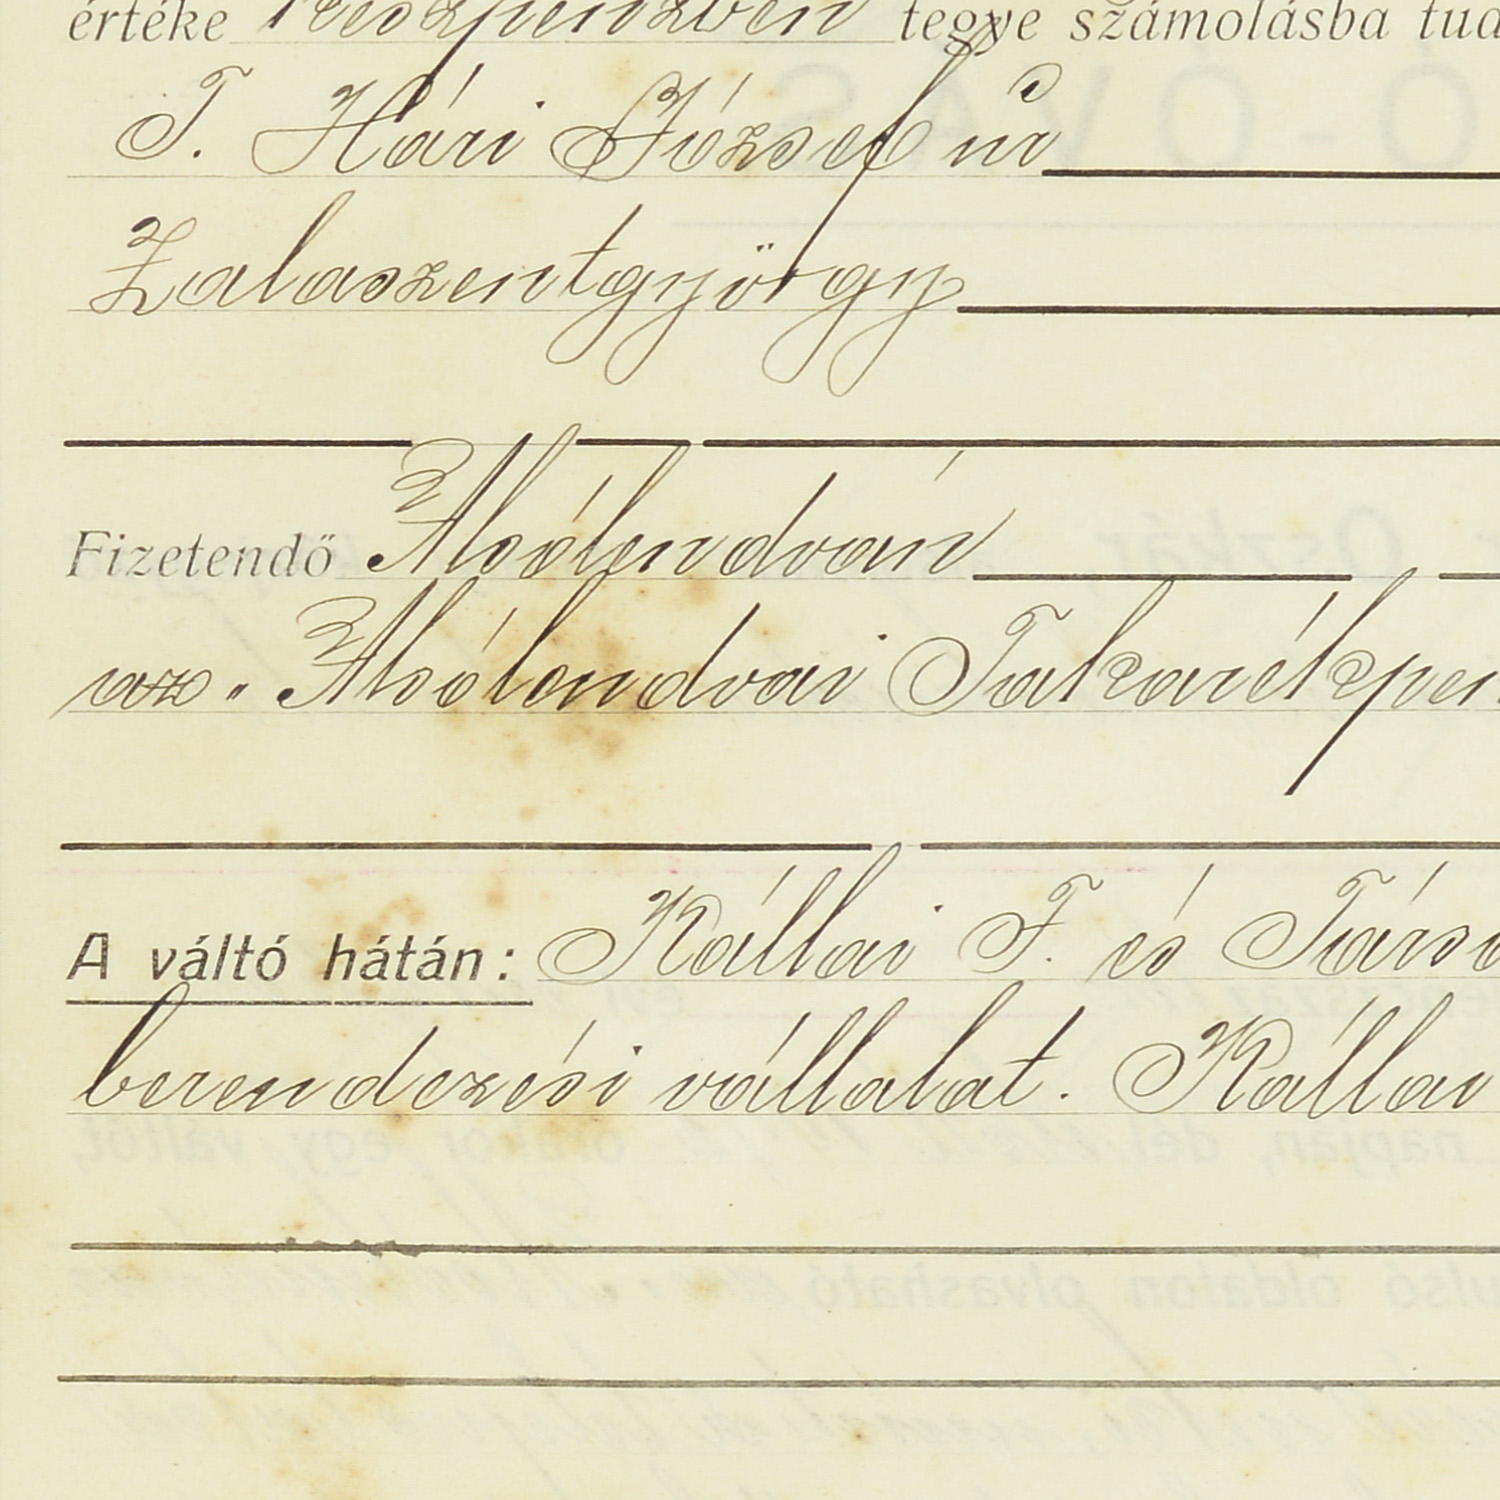 értéke készpénzben tegye számolásba tud
T. Hári József úr
Zalaszentgyörgy
Fizetendő Alsólendván
az „Alsólendvai Takarékpén
A váltó hátán: Kállai F. és Társa
berendezési vállalat. Kállai